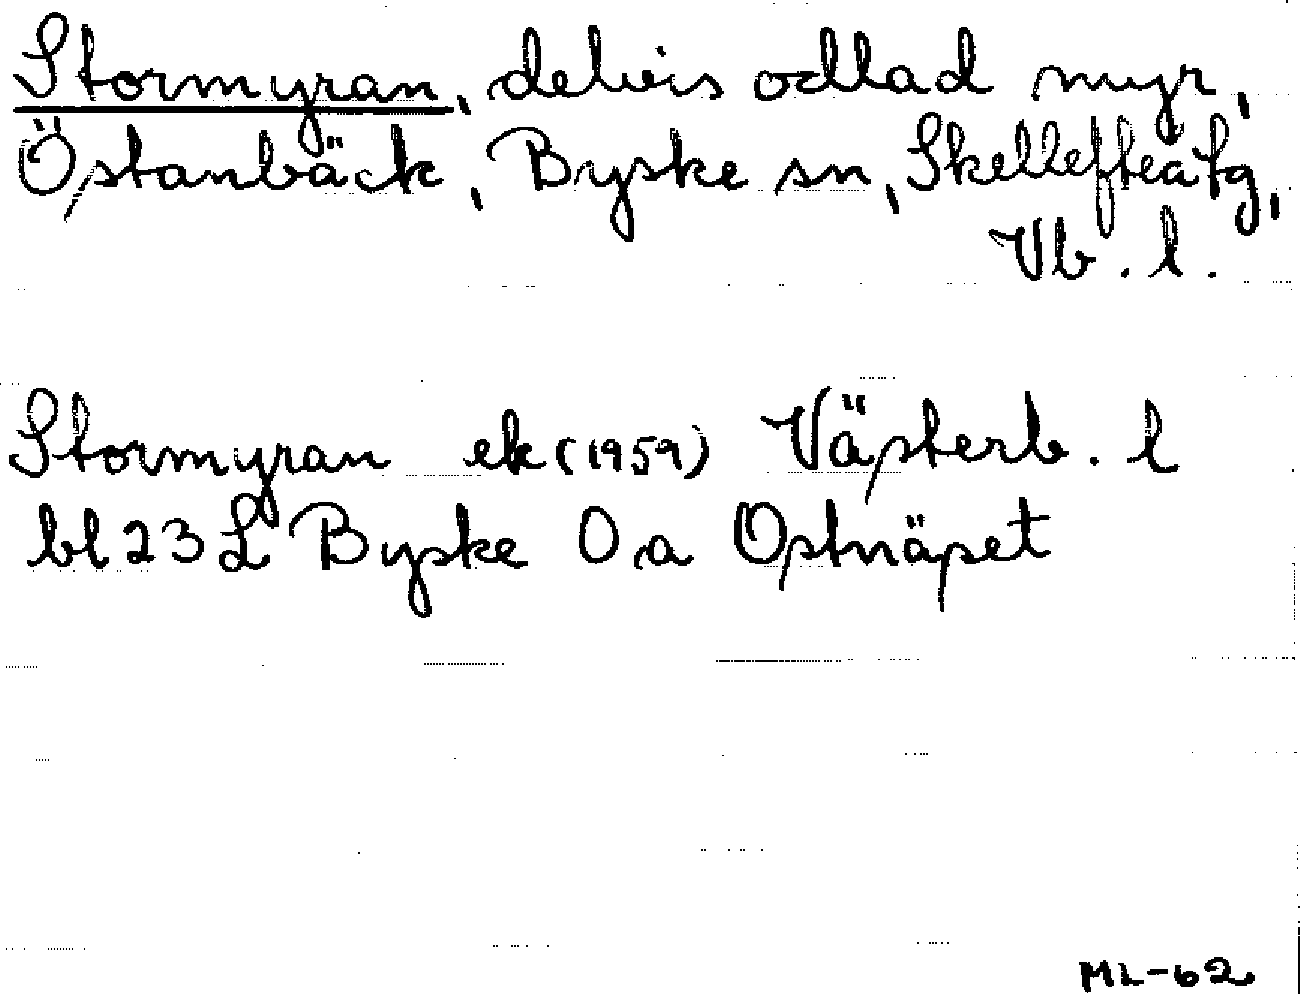 Stormyran, delvis odlad myr,
Östanbäck, Byske sn, Skellefteå tg,
Vb. l.
Stormyran ek (1959) Västerb. l
bl 23 L Byske O, a Ostnäset
ML-62